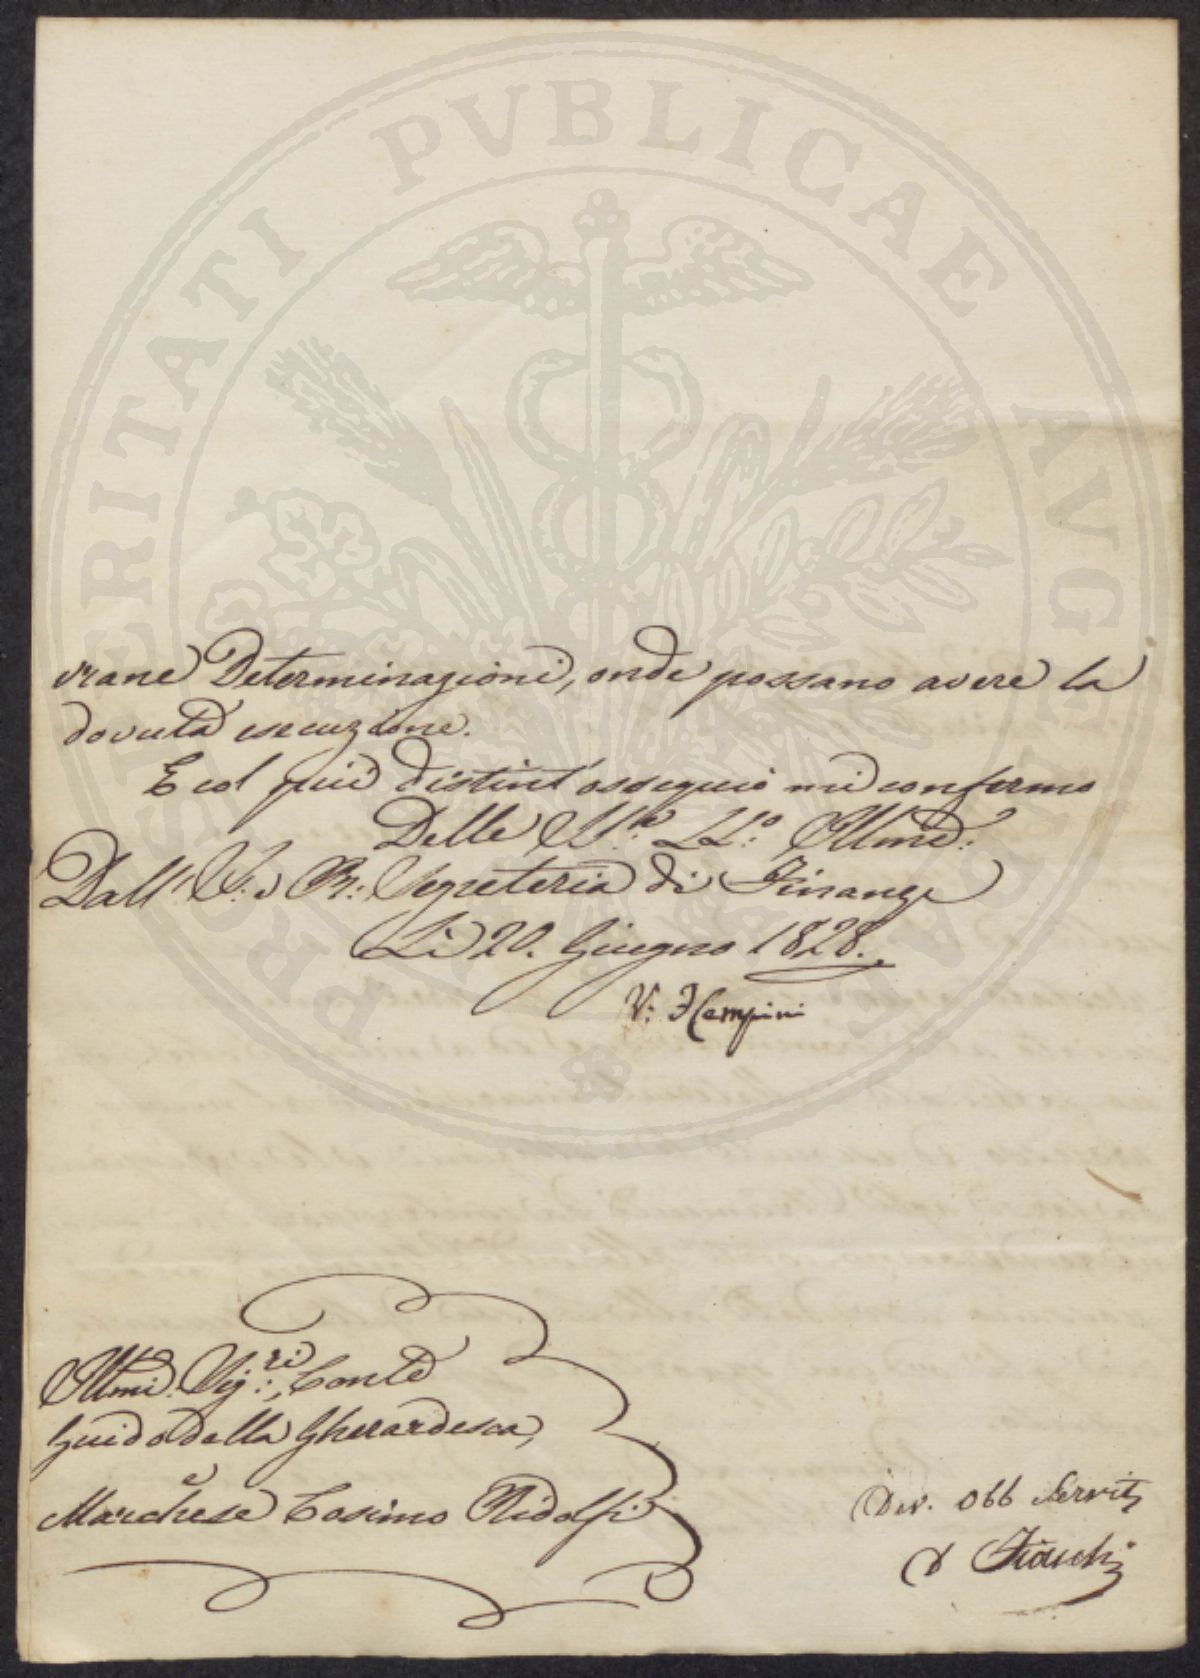 PROSPERITATI PVBLICAE AVGENDAE
vrane Determinazioni, onde possano avere la
dovuta esecuzione.
E col più distint'ossequio mi confermo
Delle LL: Illme:
Dall' I: e R: Segreteria di Finanze
Li 20. Giugno 1828.
V: FCempini
Illmi: Sig:ri Conte
Guido della Gherardesca,
e
Marchese Cosimo Ridolfi
Dev. Obb Servit